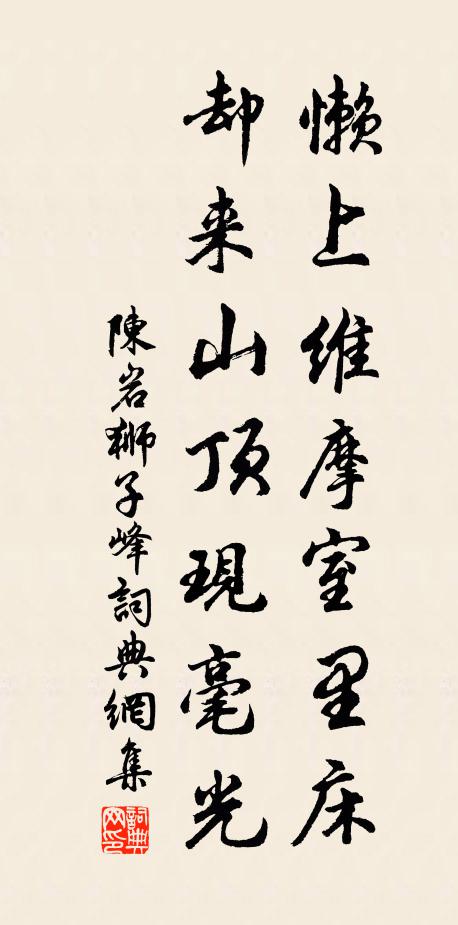 懒上维摩室里床
却来山顶现毫光
陳岩獅子峰詞典網集
詞典网印